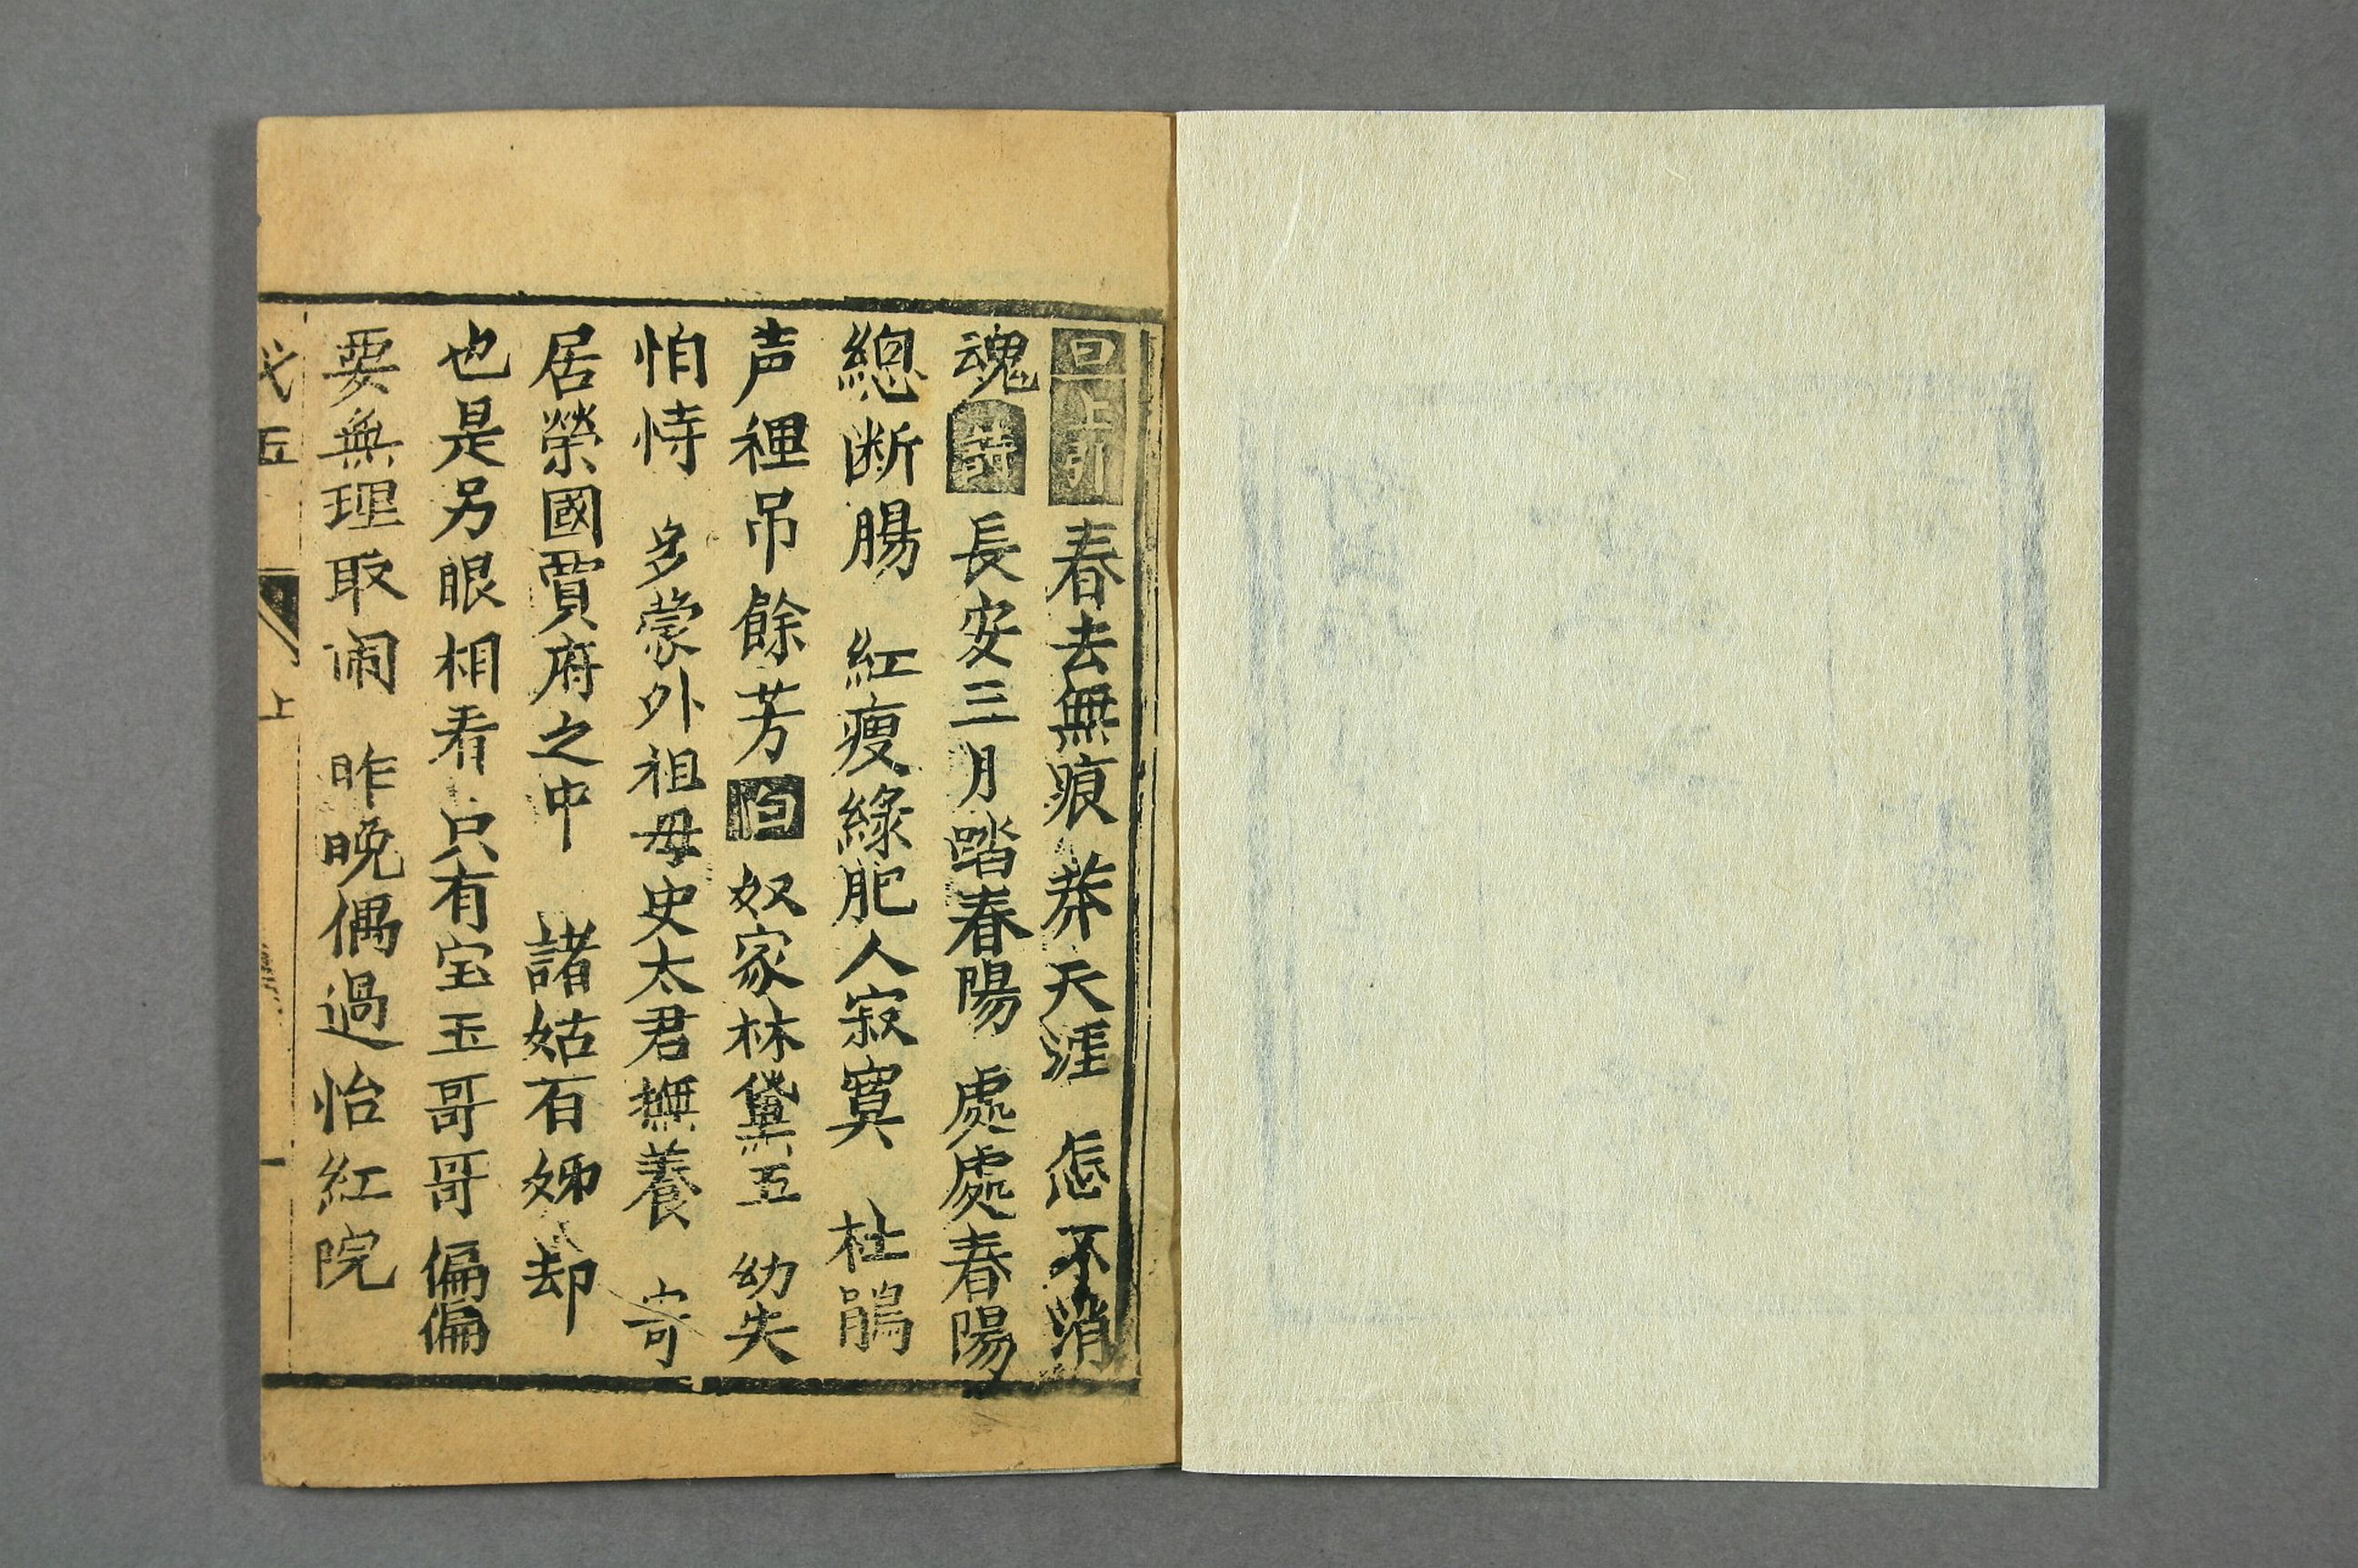 旦上引春去無痕莽天涯怎不消
魂詩長安三月踏春陽處處春陽
總断腸紅瘦綠肥人寂寞杜鵑
声裡吊餘芳白奴家林黛玉幼失
怕恃多蒙外祖母史太君撫養寄
居榮國賈府之中諸姑百姊却
也是另眼相看只有宝玉哥哥偏偏
要無理取闹昨晚偶過怡紅院
五上一